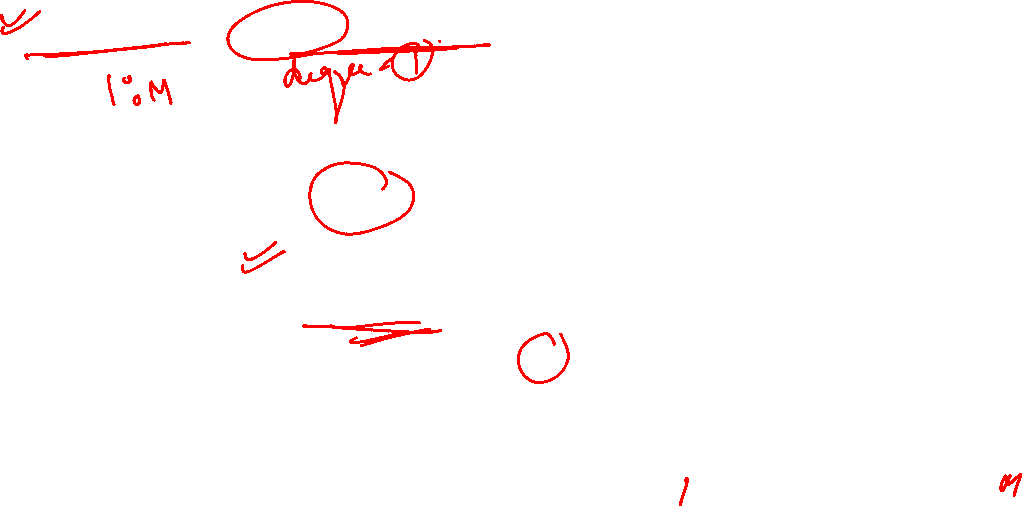 1:M degree - 1
1 M